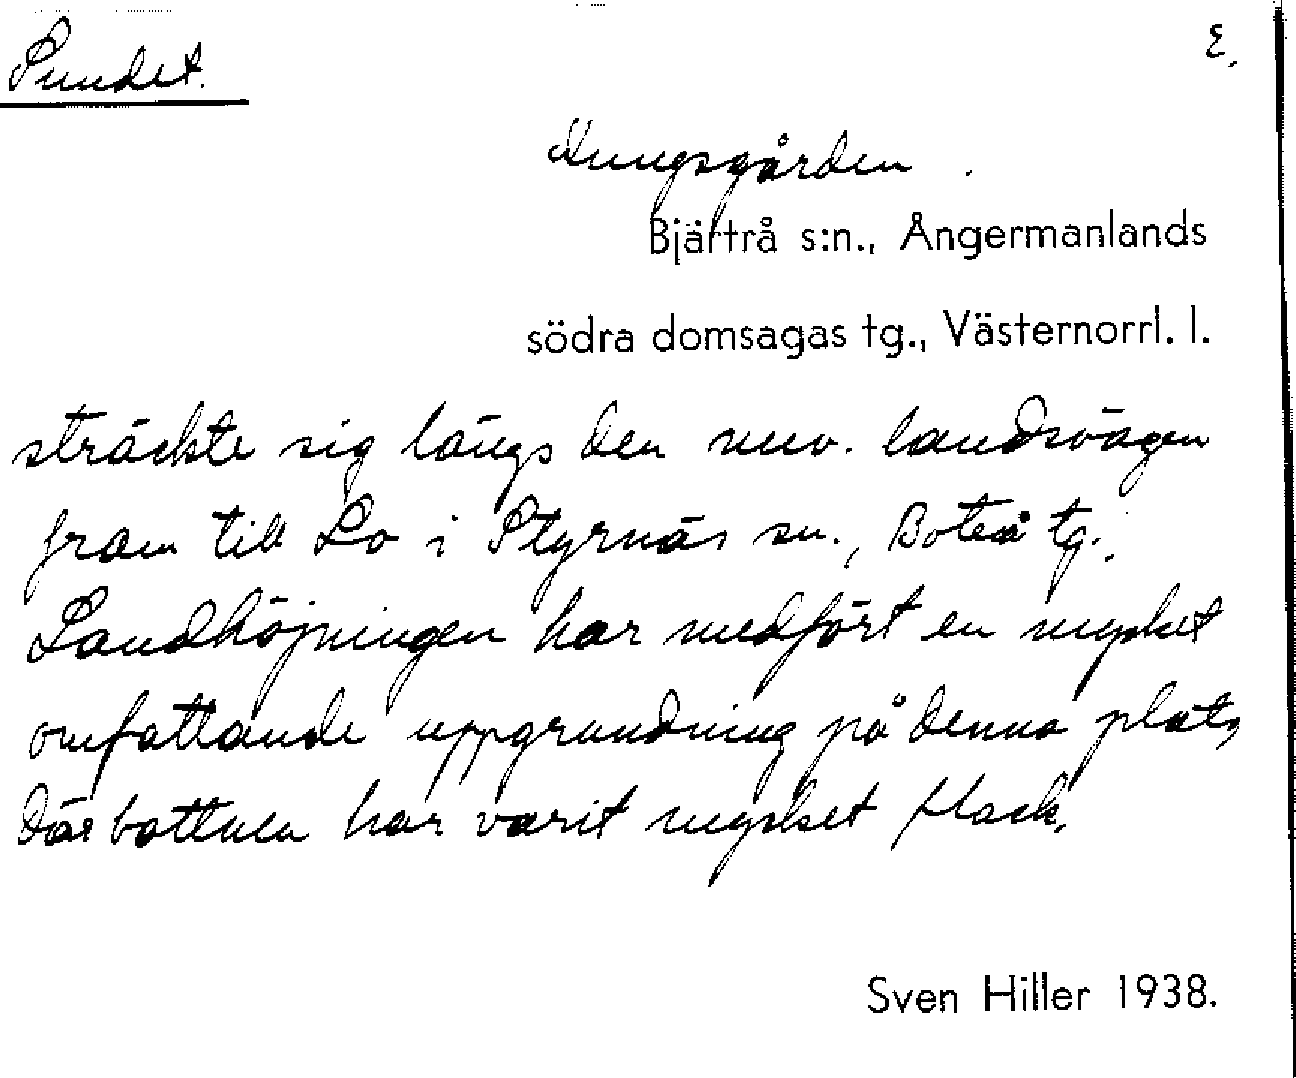 Sundet.
E.
Kungsgården.
Bjärtrå s:n., Ångermanlands
södra domsagas tg., Västernorrl. l.
sträckte sig längs den nuv. landsvägen
fram till Lo i Styrnäs sn., Boteå tg.
Landhöjningen har medfört en mycket
omfattande uppgrundning på denna plats,
där bottnen har varit mycket flack.
Sven Hiller 1938.